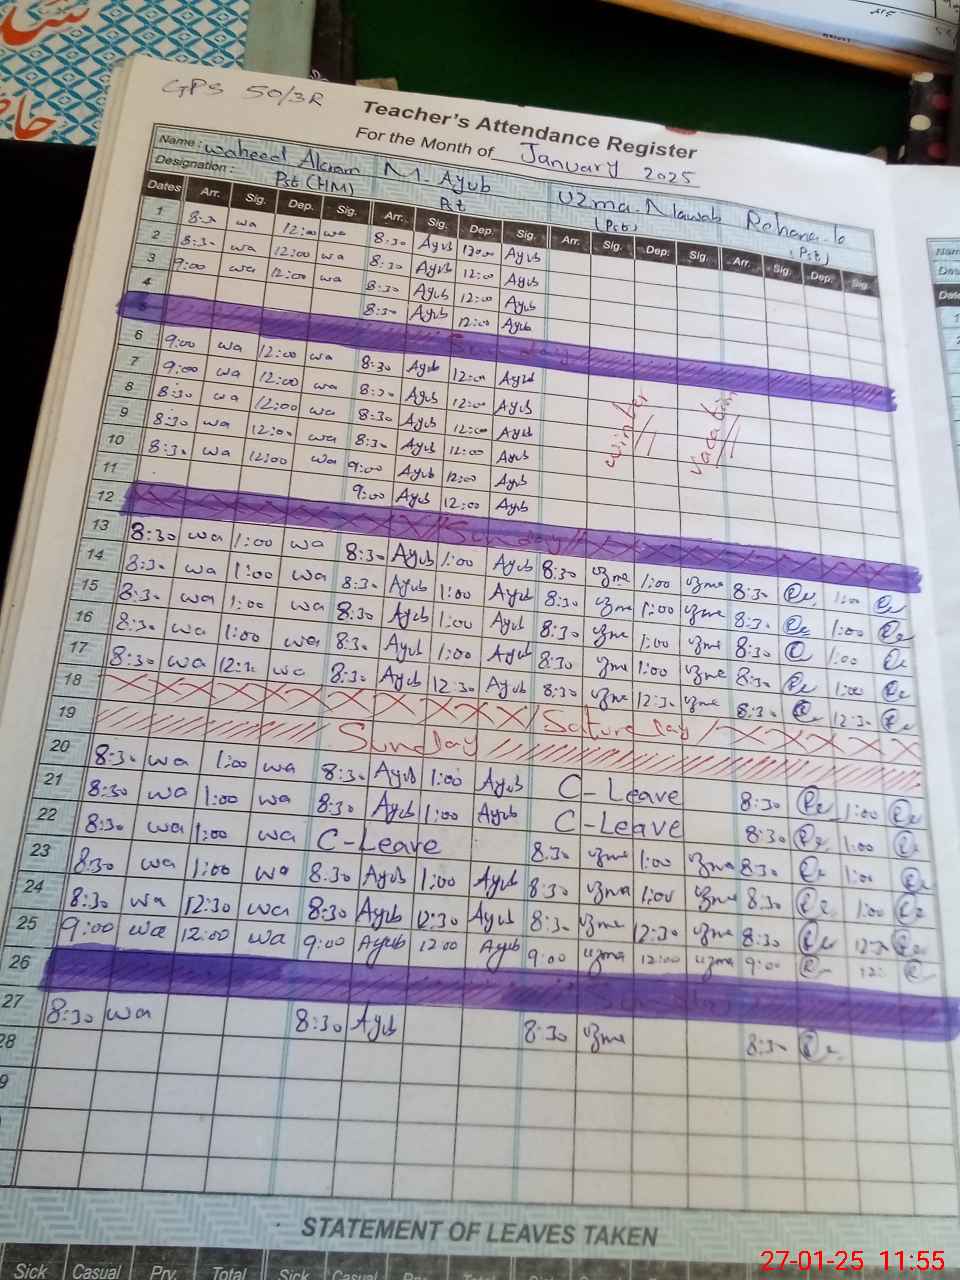 GPS 50/3R
Teacher's Attendance Register
For the Month of January 2025
Name: Waheed Akram M. Ayub Uzma Nawab Rehana
Designation: Pst (HM) Pst (Pst) (Pst)
Dates Arr. Sig. Dep. Sig. Arr. Sig. Dep. Sig. Arr. Sig. Dep. Sig. Arr. Sig. Dep. Sig.
1 8:30 wa 12:00 wa 8:30 Ayub 12:00 Ayub
2 8:30 wa 12:00 wa 8:30 Ayub 12:00 Ayub
3 9:00 wa 12:00 wa 8:30 Ayub 12:00 Ayub
4 8:30 Ayub 12:00 Ayub
5
6 9:00 wa 12:00 wa 8:30 Ayub 12:00 Ayub
7 9:00 wa 12:00 wa 8:30 Ayub 12:00 Ayub
8 8:30 wa 12:00 wa 8:30 Ayub 12:00 Ayub
winter vacation
9 8:30 wa 12:00 wa 8:30 Ayub 12:00 Ayub
10 8:30 wa 12:00 wa 9:00 Ayub 12:00 Ayub
11 9:00 Ayub 12:00 Ayub
12 Sunday
13 8:30 wa 1:00 wa 8:30 Ayub 1:00 Ayub 8:30 uzma 1:00 uzma 8:30 1:00
14 8:30 wa 1:00 wa 8:30 Ayub 1:00 Ayub 8:30 uzma 1:00 uzma 8:30 1:00
15 8:30 wa 1:00 wa 8:30 Ayub 1:00 Ayub 8:30 uzma 1:00 uzma 8:30 1:00
16 8:30 wa 1:00 wa 8:30 Ayub 1:00 Ayub 8:30 uzma 1:00 uzma 8:30 1:00
17 8:30 wa 12:30 wa 8:30 Ayub 12:30 Ayub 8:30 uzma 12:30 uzma 8:30 12:30
18 Saturday
19 Sunday
20 8:30 wa 1:00 wa 8:30 Ayub 1:00 Ayub C-Leave 8:30 1:00
21 8:30 wa 1:00 wa 8:30 Ayub 1:00 Ayub C-Leave 8:30 1:00
22 8:30 wa 1:00 wa C-Leave 8:30 uzma 1:00 uzma 8:30 1:00
23 8:30 wa 1:00 wa 8:30 Ayub 1:00 Ayub 8:30 uzma 1:00 uzma 8:30 1:00
24 8:30 wa 12:30 wa 8:30 Ayub 12:30 Ayub 8:30 uzma 12:30 uzma 8:30 12:30
25 9:00 wa 12:00 wa 9:00 Ayub 12:00 Ayub 9:00 uzma 12:00 uzma 9:00
26 Sunday
27 8:30 wa 8:30 Ayub 8:30 uzma 8:30
28
STATEMENT OF LEAVES TAKEN
Sick Casual Prv. Total Sick Casual
27-01-25 11:55